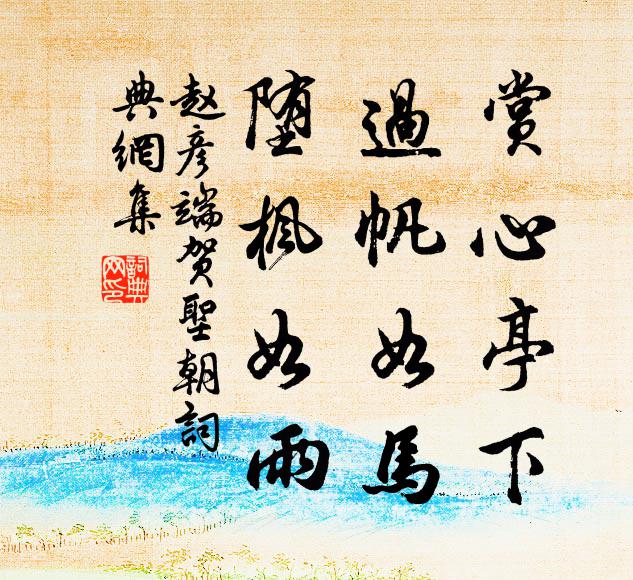 赏心亭下
過帆如馬
堕楓如雨
赵彦端贺聖朝詞
典網集
詞典網印